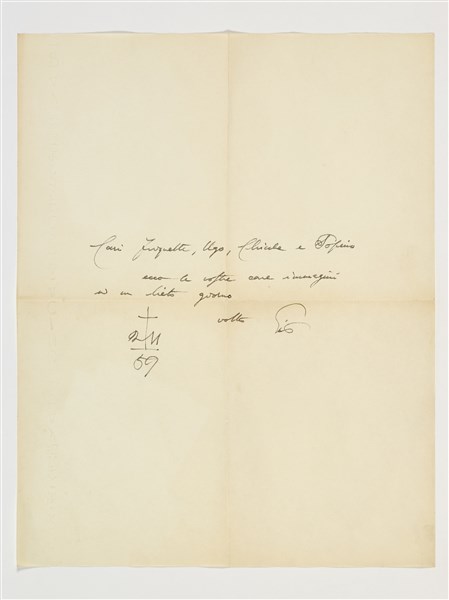 Cari Enrichetta, Ugo, Chicola e Topino
ecco le vostre care immagini
ed un lieto giorno
vostro Gio
59